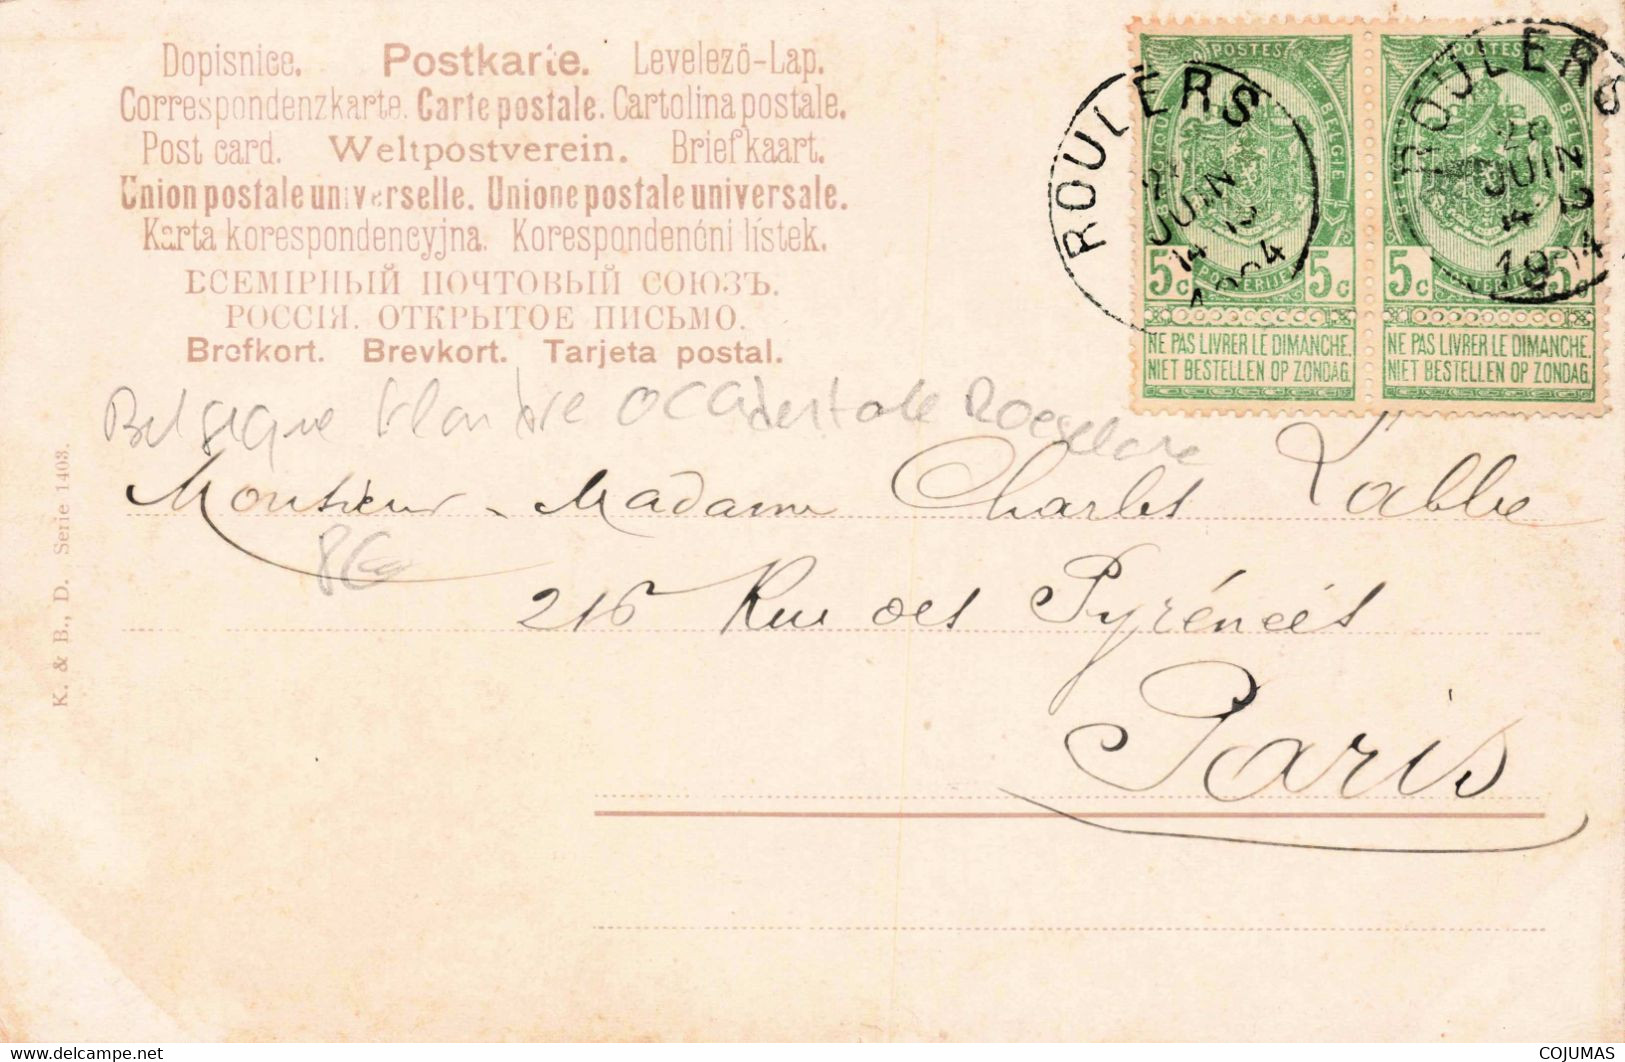 Dopisnice. Postkarte. Levelező-Lap.
Correspondenzkarte. Carte postale. Cartolina postale.
Post card. Weltpostverein. Briefkaart.
Union postale universelle. Unione postale universale.
Karta korespondencyjna. Korespondenčni lístek.
ВСЕМІРНЫЙ ПОЧТОВЫЙ СОЮЗЪ.
РОССІЯ. ОТКРЫТОЕ ПИСЬМО.
Brefkort. Brevkort. Tarjeta postal.
POSTES
BELGIQUE BELGIE
5c POSTERIJEN 5c
NE PAS LIVRER LE DIMANCHE.
NIET BESTELLEN OP ZONDAG
POSTES
BELGIE
5c POSTERIJEN 5c
NE PAS LIVRER LE DIMANCHE.
NIET BESTELLEN OP ZONDAG
ROULERS
JUIN
1904
ROULERS
JUIN
1904
Belgique Flandre occidentale Roeselare
Monsieur Madame Charles Labbe
216 Rue des Pyrénées
Paris
K. & B., D. Serie 1403.
delcampe.net
COJUMAS